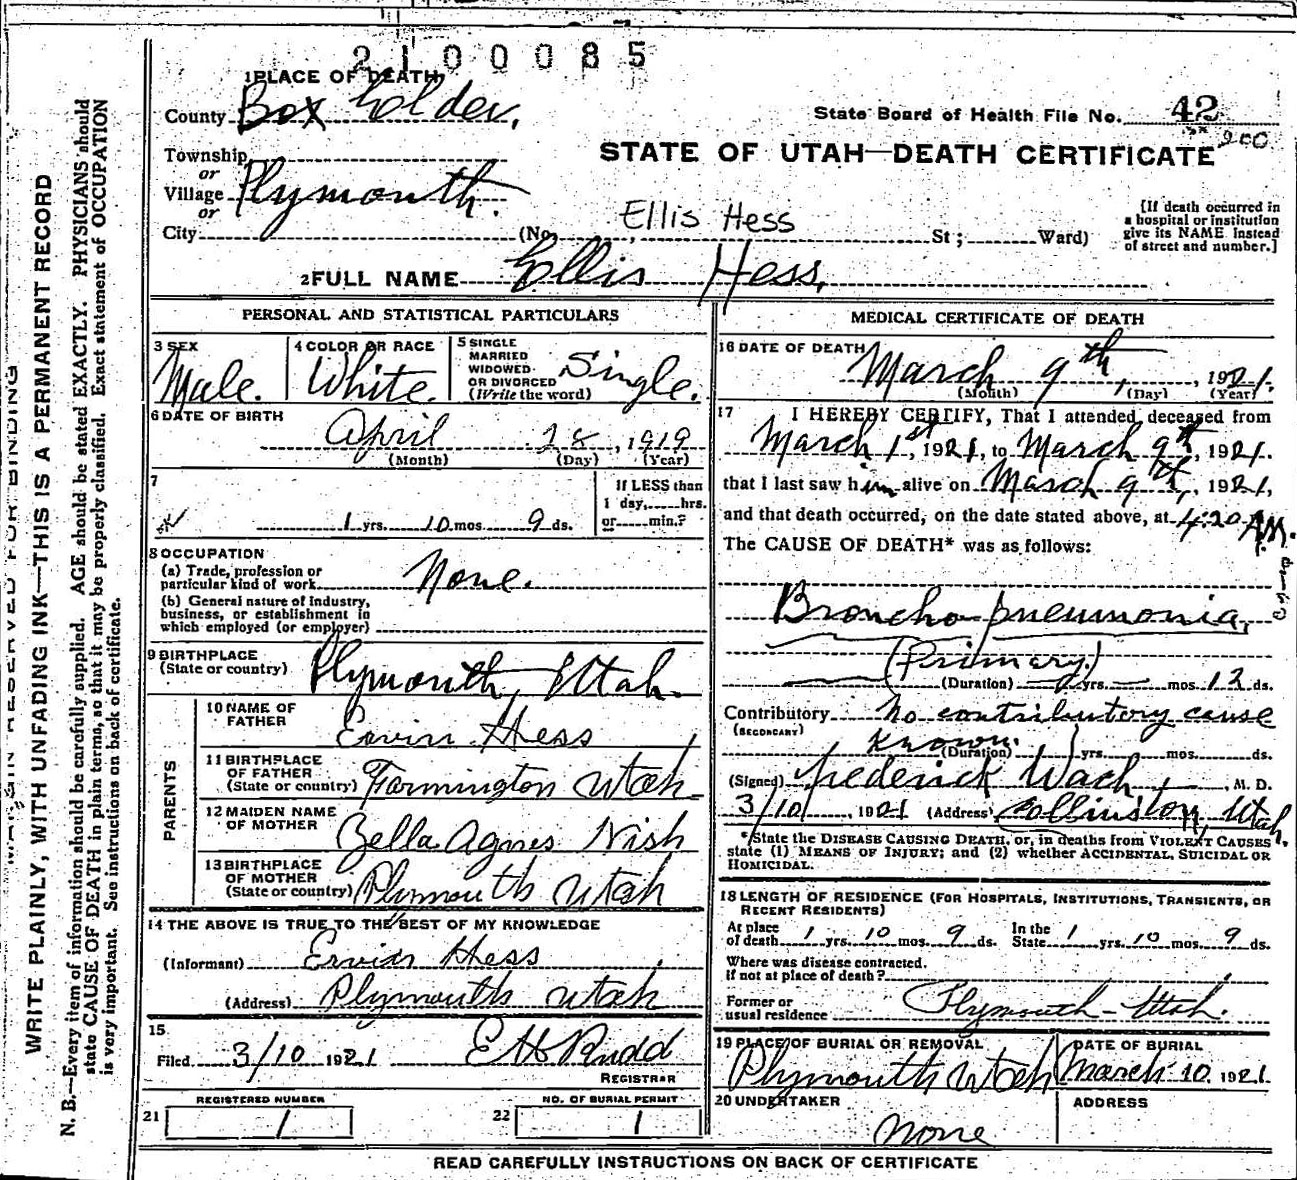 2100085
1 PLACE OF DEATH
County Box Elder.
State Board of Health File No. 42
200
Township
or
Village Plymouth.
or
City (No. Ellis Hess St; Ward)
STATE OF UTAH—DEATH CERTIFICATE
[If death occurred in
a hospital or institution
give its NAME instead
of street and number.]
2 FULL NAME Ellis Hess.
PERSONAL AND STATISTICAL PARTICULARS
3 SEX
Male.
4 COLOR OR RACE
White.
5 SINGLE
MARRIED
WIDOWED
OR DIVORCED
(Write the word)
Single.
6 DATE OF BIRTH
April 28, 1919
(Month) (Day) (Year)
7
1 yrs. 10 mos. 9 ds.
If LESS than
1 day, hrs.
or min.?
8 OCCUPATION
(a) Trade, profession or
particular kind of work None.
(b) General nature of industry,
business, or establishment in
which employed (or employer)
9 BIRTHPLACE
(State or country) Plymouth, Utah.
PARENTS
10 NAME OF
FATHER Ervin Hess
11 BIRTHPLACE
OF FATHER
(State or country) Farmington Utah
12 MAIDEN NAME
OF MOTHER Bella Agnes Nish
13 BIRTHPLACE
OF MOTHER
(State or country) Plymouth Utah
14 THE ABOVE IS TRUE TO THE BEST OF MY KNOWLEDGE
(Informant) Ervin Hess
(Address) Plymouth Utah
15
Filed 3/10 1921 E H Rudd
REGISTRAR
21 REGISTERED NUMBER
1
22 NO. OF BURIAL PERMIT
1
MEDICAL CERTIFICATE OF DEATH
16 DATE OF DEATH
March 9th, , 1921.
(Month) (Day) (Year)
17 I HEREBY CERTIFY, That I attended deceased from
March 1st, 1921, to March 9th, 1921.
that I last saw him alive on March 9th, 1921,
and that death occurred, on the date stated above, at 4:20 A.M.
The CAUSE OF DEATH* was as follows:
Broncho-pneumonia,
(Primary)
(Duration) yrs. mos. 12 ds.
Contributory No contributory cause
(SECONDARY)
known.
(Duration) yrs. mos. ds.
(Signed) Frederick Wach, M. D.
3/10, 1921 (Address) Collinston, Utah.
*State the DISEASE CAUSING DEATH, or, in deaths from VIOLENT CAUSES
state (1) MEANS OF INJURY; and (2) whether ACCIDENTAL, SUICIDAL OR
HOMICIDAL.
18 LENGTH OF RESIDENCE (FOR HOSPITALS, INSTITUTIONS, TRANSIENTS, OR
RECENT RESIDENTS)
At place
of death 1 yrs. 10 mos. 9 ds. In the
State 1 yrs. 10 mos. 9 ds.
Where was disease contracted.
if not at place of death?
Former or
usual residence Plymouth - Utah.
19 PLACE OF BURIAL OR REMOVAL
Plymouth Utah
DATE OF BURIAL
March 10, 1921
20 UNDERTAKER
None
ADDRESS
READ CAREFULLY INSTRUCTIONS ON BACK OF CERTIFICATE
MARGIN RESERVED FOR BINDING
WRITE PLAINLY, WITH UNFADING INK—THIS IS A PERMANENT RECORD
N. B.—Every item of information should be carefully supplied. AGE should be stated EXACTLY. PHYSICIANS should
state CAUSE OF DEATH in plain terms, so that it may be properly classified. Exact statement of OCCUPATION
is very important. See instructions on back of certificate.